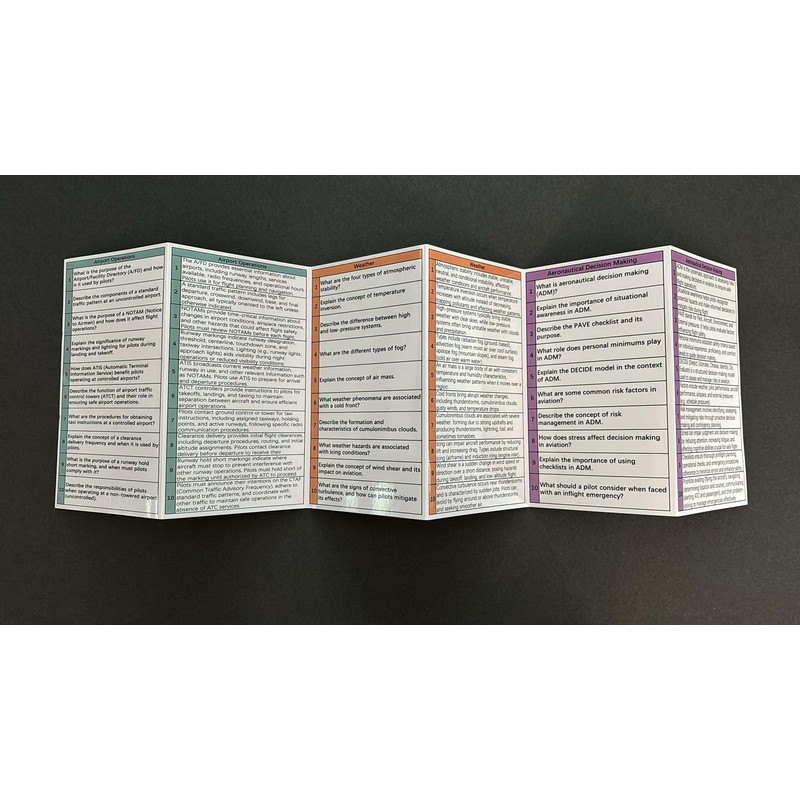 Airport Operations
1 What is the purpose of the
Airport/Facility Directory (A/FD) and how
is it used by pilots?
2 Describe the components of a standard
traffic pattern at an uncontrolled airport.
3 What is the purpose of a NOTAM (Notice
to Airmen) and how does it affect flight
operations?
4 Explain the significance of runway
markings and lighting for pilots during
landing and takeoff.
5 How does ATIS (Automatic Terminal
Information Service) benefit pilots
operating at controlled airports?
6 Describe the function of airport traffic
control towers (ATCT) and their role in
ensuring safe airport operations.
7 What are the procedures for obtaining
taxi instructions at a controlled airport?
8 Explain the concept of a clearance
delivery frequency and when it is used by
pilots.
9 What is the purpose of a runway hold
short marking, and when must pilots
comply with it?
10 Describe the responsibilities of pilots
when operating at a non-towered airport
(uncontrolled).
Airport Operations
1 The A/FD provides essential information about
airports, including runway lengths, services
available, radio frequencies, and operational hours.
Pilots use it for flight planning and navigation.
2 A standard traffic pattern includes legs for
departure, crosswind, downwind, base, and final
approach, all typically oriented to the left unless
otherwise indicated.
3 NOTAMs provide time-critical information about
changes in airport conditions, airspace restrictions,
and other hazards that could affect flight safety.
Pilots must review NOTAMs before each flight.
4 Runway markings indicate runway designation,
threshold, centerline, touchdown zone, and
taxiway intersections. Lighting (e.g., runway lights,
approach lights) aids visibility during night
operations or reduced visibility conditions.
5 ATIS broadcasts current weather information,
runway in use, and other relevant information such
as NOTAMs. Pilots use ATIS to prepare for arrival
and departure procedures.
6 ATCT controllers provide instructions to pilots for
takeoffs, landings, and taxiing to maintain
separation between aircraft and ensure efficient
airport operations.
7 Pilots contact ground control or tower for taxi
instructions, including assigned taxiways, holding
points, and active runways, following specific radio
communication procedures.
8 Clearance delivery provides initial flight clearances,
including departure procedures, routing, and initial
altitude assignments. Pilots contact clearance
delivery before departure to receive their
9 Runway hold short markings indicate where
aircraft must stop to prevent interference with
other aircraft operations. Pilots must hold short of
the marking until authorized by ATC to proceed.
10 Pilots must announce their intentions on the CTAF
(Common Traffic Advisory Frequency), adhere to
standard traffic patterns, and coordinate with
other traffic to maintain safe operations in the
absence of ATC services.
Weather
1 What are the four types of atmospheric
stability?
2 Explain the concept of temperature
inversion.
3 Describe the difference between high
and low-pressure systems.
4 What are the different types of fog?
5 Explain the concept of air mass.
6 What weather phenomena are associated
with a cold front?
7 Describe the formation and
characteristics of cumulonimbus clouds.
8 What weather hazards are associated
with icing conditions?
9 Explain the concept of wind shear and its
impact on aviation.
10 What are the signs of convective
turbulence, and how can pilots mitigate
its effects?
Weather
1 Atmospheric stability includes stable, unstable,
neutral, and conditional instability, affecting
weather conditions and aircraft performance.
2 Temperature inversion occurs when temperature
increases with altitude instead of decreasing,
trapping pollutants and affecting weather patterns.
3 High-pressure systems typically bring stable
weather with clear skies, while low-pressure
systems often bring unstable weather with clouds
and precipitation.
4 Types include radiation fog (ground-based),
advection fog (warm moist air over cool surface),
upslope fog (mountain slopes), and steam fog
(cold air over warm water).
5 An air mass is a large body of air with consistent
temperature and humidity characteristics,
influencing weather patterns when it moves over a
region.
6 Cold fronts bring abrupt weather changes,
including thunderstorms, cumulonimbus clouds,
gusty winds, and temperature drops.
7 Cumulonimbus clouds are associated with severe
weather, forming due to strong updrafts and
producing thunderstorms, lightning, hail, and
sometimes tornadoes.
8 Icing can impair aircraft performance by reducing
lift and increasing drag. Types include structural
icing (airframe) and induction icing (engine inlet).
9 Wind shear is a sudden change in wind speed or
direction over a short distance, posing hazards
during takeoff, landing, and low-altitude flight.
10 Convective turbulence occurs near thunderstorms
and is characterized by sudden jolts. Pilots can
avoid by flying around or above thunderstorms
and seeking smoother air.
Aeronautical Decision Making
1 What is aeronautical decision making
(ADM)?
2 Explain the importance of situational
awareness in ADM.
3 Describe the PAVE checklist and its
purpose.
4 What role does personal minimums play
in ADM?
5 Explain the DECIDE model in the context
of ADM.
6 What are some common risk factors in
aviation?
7 Describe the concept of risk
management in ADM.
8 How does stress affect decision making
in aviation?
9 Explain the importance of using
checklists in ADM.
10 What should a pilot consider when faced
with an inflight emergency?
Aeronautical Decision Making